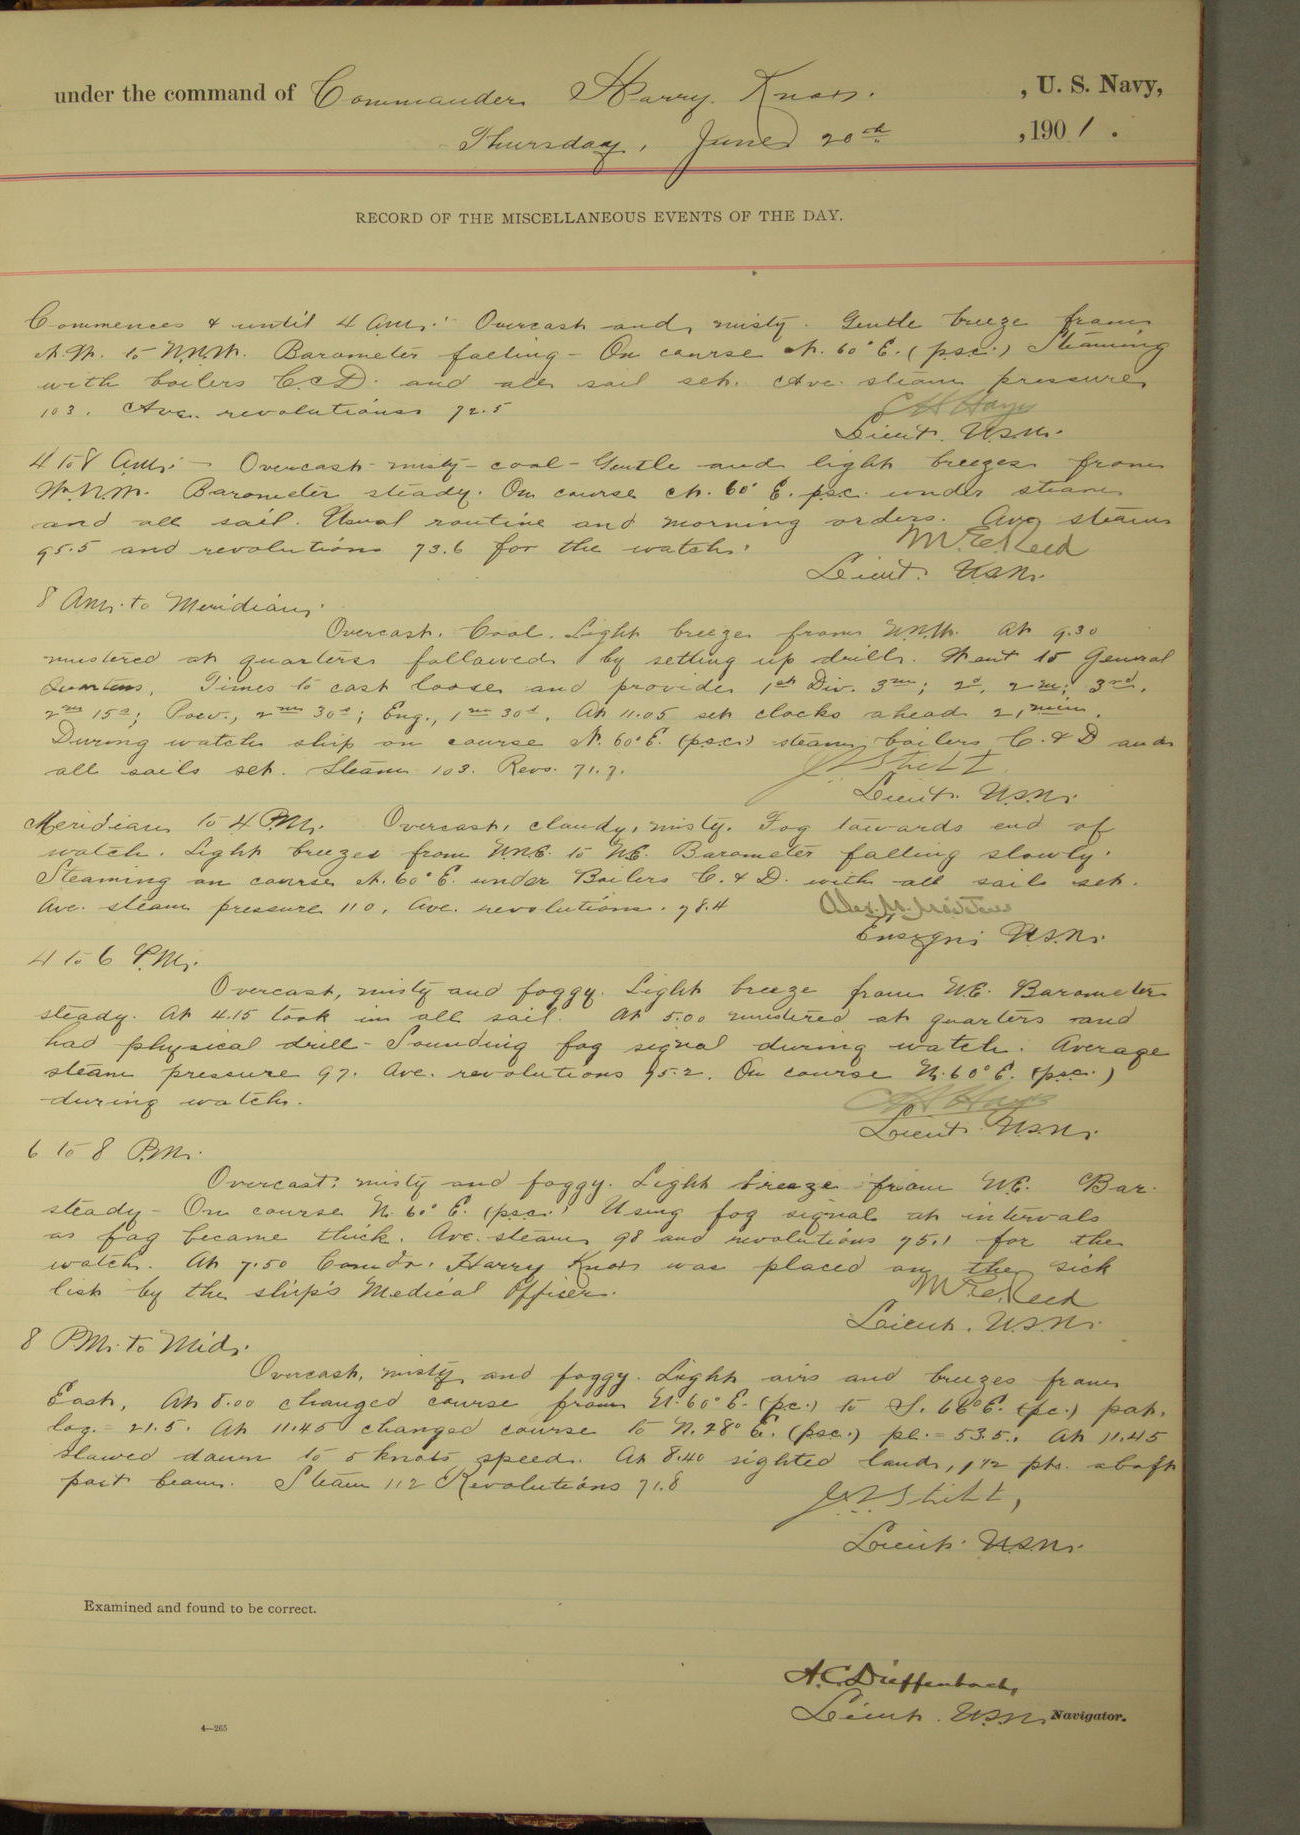 under the command of Commander Harry Knox. , U. S. Navy,
Thursday, June 20th. , 1901.
RECORD OF THE MISCELLANEOUS EVENTS OF THE DAY.
Commences & until 4 A.M.: Overcast and misty. Gentle breeze from
N.W. to N.N.W. Barometer falling - On course N. 60° E. (p.s.c.) Steaming
with boilers C. & D. and all sail set. Ave. steam pressure
103. Ave. revolutions 72.5
C H Hayes
Lieut. U.S.N.
4 to 8 A.M.: - Overcast - misty - cool - Gentle and light breezes from
W.N.W. Barometer steady. On course N. 60° E. p.s.c. under steam
and all sail. Usual routine and morning orders. Avg steam
95.5 and revolutions 73.6 for the watch.
M. E. Reed
Lieut. U.S.N.
8 A.M. to Meridian.
Overcast. Cool. Light breeze from N.N.W. At 9.30
mustered at quarters followed by setting up drill. Went to General
Quarters. Times to cast loose and provide 1st Div. 3m; 2d, 2m; 3rd,
2m 15s; Pow., 2m 30s; Eng., 1m 30s. At 11.05 set clocks ahead 21 min.
During watch ship on course N. 60° E. (p.s.c.) steam boilers C. & D and
all sails set. Steam 103. Revs. 71.7.
Lieut. U.S.N.
Meridian to 4 P.M. Overcast, cloudy, misty. Fog towards end of
watch. Light breezes from N.N.E. to N.E. Barometer falling slowly.
Steaming on course N. 60° E. under Boilers C. & D. with all sails set.
Ave. steam pressure 110. Ave. revolutions. 78.4
Ensign U.S.N.
4 to 6 P.M.
Overcast, misty and foggy. Light breeze from N.E. Barometer
steady. At 4.15 took in all sail. At 5.00 mustered at quarters and
had physical drill - Sounding fog signal during watch. Average
steam pressure 97. Ave. revolutions 75.2. On course N. 60° E. (p.s.c.)
during watch.
C H Hayes
Lieut. U.S.N.
6 to 8 P.M.
Overcast: misty and foggy. Light breeze from N.E. Bar.
steady - On course N. 60° E. (p.s.c.) Using fog signal at intervals
as fog became thick. Ave. steam 98 and revolutions 75.1 for the
watch. At 7.50 Comdr. Harry Knox was placed on the sick
list by the ship's Medical Officer.
M. E. Reed
Lieut. U.S.N.
8 P.M. to Mid.
Overcast, misty and foggy. Light airs and breezes from
East. At 8.00 changed course from N. 60° E. (p.c.) to S. 68° E. (p.c.) pat.
log. = 21.5. At 11.45 changed course to N. 28° E. (p.s.c.) p.l. = 53.5. At 11.45
slowed down to 5 knots speed. At 8.40 sighted land, 1 1/2 pts. abaft
port beam. Steam 112 Revolutions 71.8
Lieut. U.S.N.
Examined and found to be correct.
A.C. Dieffenbach,
Lieut. U.S.N. Navigator.
4—265